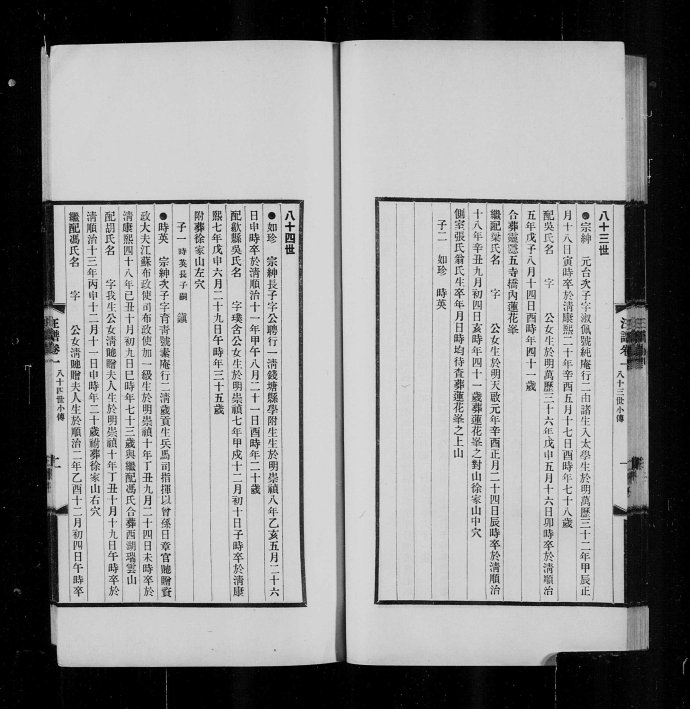 八十三世
宗紳　元台次子字淑佩號純庵行二由諸生入太學生於明萬歷三十二年甲辰正
月十八日寅時卒於清康熙二十年辛酉五月十七日酉時年七十八歲
配吳氏名　字　公女生於明萬歷三十六年戊申五月十六日卯時卒於清順治
五年戊子八月十四日酉時年四十一歲
合葬靈隱五寺橋內蓮花峯
繼配梁氏名　字　公女生於明天啟元年辛酉正月二十四日辰時卒於清順治
十八年辛丑九月初四日亥時年四十一歲葬蓮花峯之對山徐家山中穴
側室張氏翁氏生卒年月日時均待查葬蓮花峯之上山
子二　如珍　時英
汪譜卷一　八十三世小傳　一
八十四世
如珍　宗紳長子字公聘行一清錢塘縣學附生生於明崇禎八年乙亥五月二十六
日申時卒於清順治十一年甲午八月二十一日酉時年二十歲
配歙縣吳氏名　字璞含公女生於明崇禎七年甲戌十二月初十日子時卒於清康
熙七年戊申六月二十九日午時年三十五歲
附葬徐家山左穴
子一　時英長子嗣　鎮
時英　宗紳次子字育青號素庵行二清歲貢生兵馬司指揮以曾孫日章官貤贈資
政大夫江蘇布政使司布政使加一級生於明崇禎十年丁丑九月二十四日未時卒於
清康熙四十八年己丑十月初九日巳時年七十三歲與繼配馮氏合葬西湖瑞雲山
配胡氏名　字我生公女清貤贈夫人生於明崇禎十年丁丑十月十九日午時卒於
清順治十三年丙申十二月十一日申時年二十歲祔葬徐家山右穴
繼配馮氏名　字　公女清貤贈夫人生於順治二年乙酉十二月初四日午時卒
汪譜卷一　八十四世小傳　二